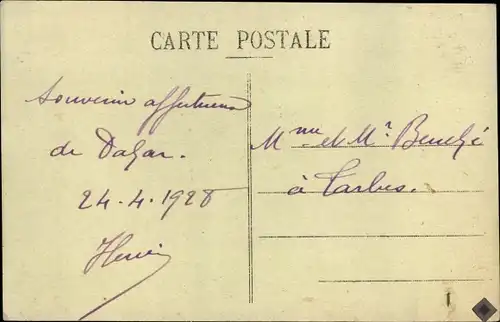 CARTE POSTALE
Souvenir affectueux
de Dakar.
24-4-1928
Henri
Mme et Mr
à Tarbes.
1